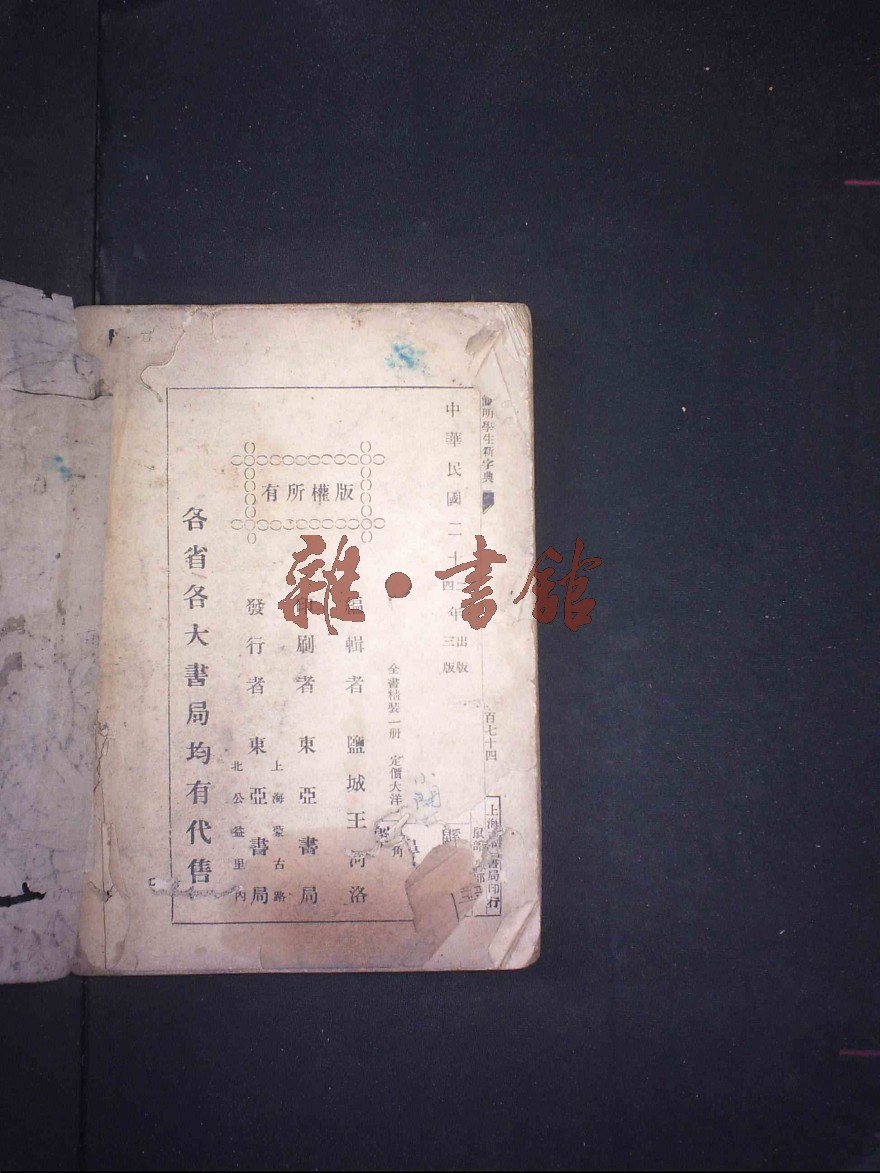 學生新字典
百七十四
書局印行
中華民國二十
二年出版
四年三版
全書精裝一册 定價大洋
角
編輯者 鹽城王河洛
印刷者 東亞書局
上海蒙古路
發行者 東亞書局
北公益里內
版權所有
各省各大書局均有代售
雜·書館